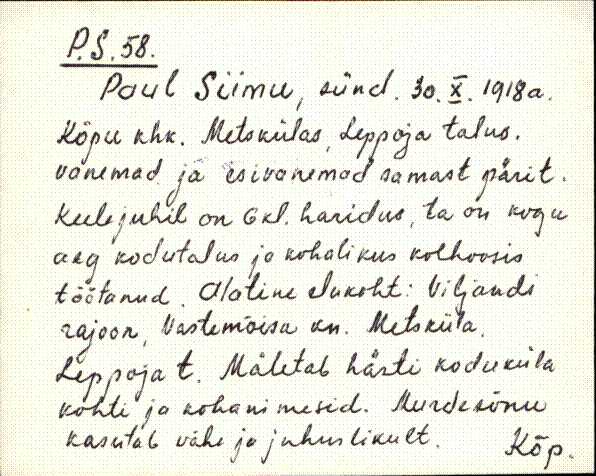 P.S. 58.
Paul Siimu, sünd. 30. X. 1918 a.
Kõpu khk. Metskülas, Leppoja talus.
vanemad ja esivanemad samast pärit.
Keelejuhil on 6 kl. haridus, ta on kogu
aeg kodutalus ja kohalikus kolhoosis
töötanud. Alatine elukoht: Viljandi
rajoon, Vastemõisa kn. Metsküla,
Leppoja t. Mäletab hästi koduküla
kohti ja kohanimesid. Murdesõnu
kasutab vähe ja juhuslikult.
Kõp.